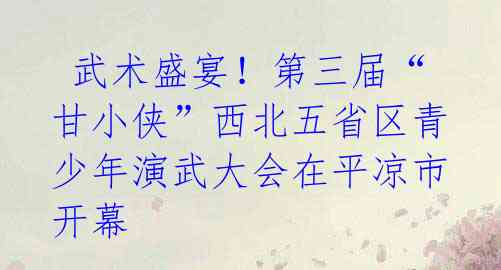 武术盛宴！第三届“
甘小侠”西北五省区青
少年演武大会在平凉市
开幕